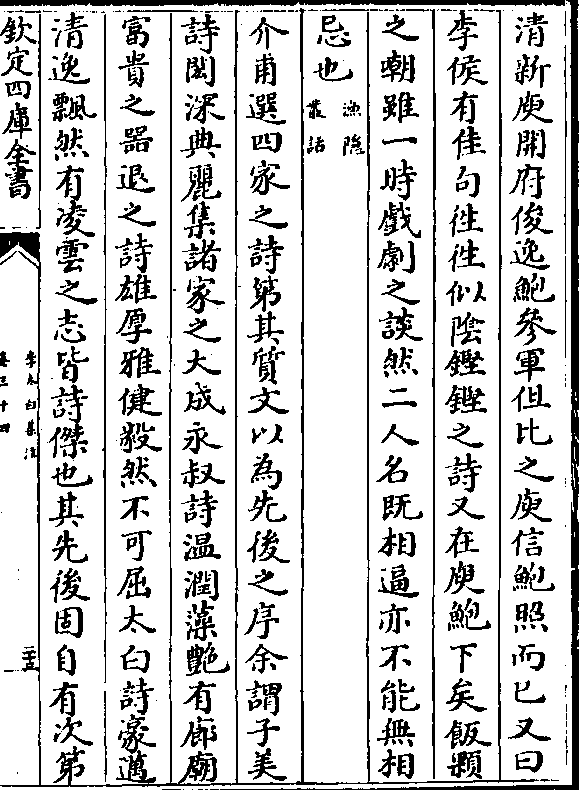 清新庾開府俊逸鮑參軍但比之庾信鮑照而已又曰
李侯有佳句徃徃似陰鏗鏗之詩又在庾鮑下矣飯顆
之嘲雖一時戲劇之談然二人名既相逼亦不能無相
忌也漁隱叢話
介甫選四家之詩第其質文以為先後之序余謂子美
詩閎深典麗集諸家之大成永叔詩温潤藻艶有廊廟
富貴之器退之詩雄厚雅健毅然不可屈太白詩豪邁
清逸飄然有凌雲之志皆詩傑也其先後固自有次第
欽定四庫全書
李太白集注
卷三十四
二十三